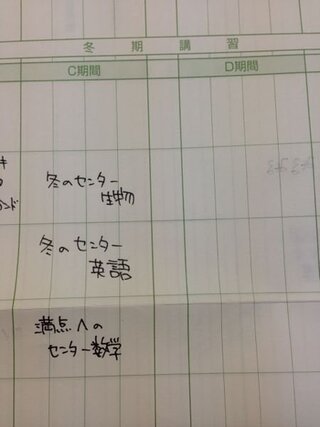 冬期講習
C期間 D期間
冬のセンター
生物
冬のセンター
英語
満点への
センター数学